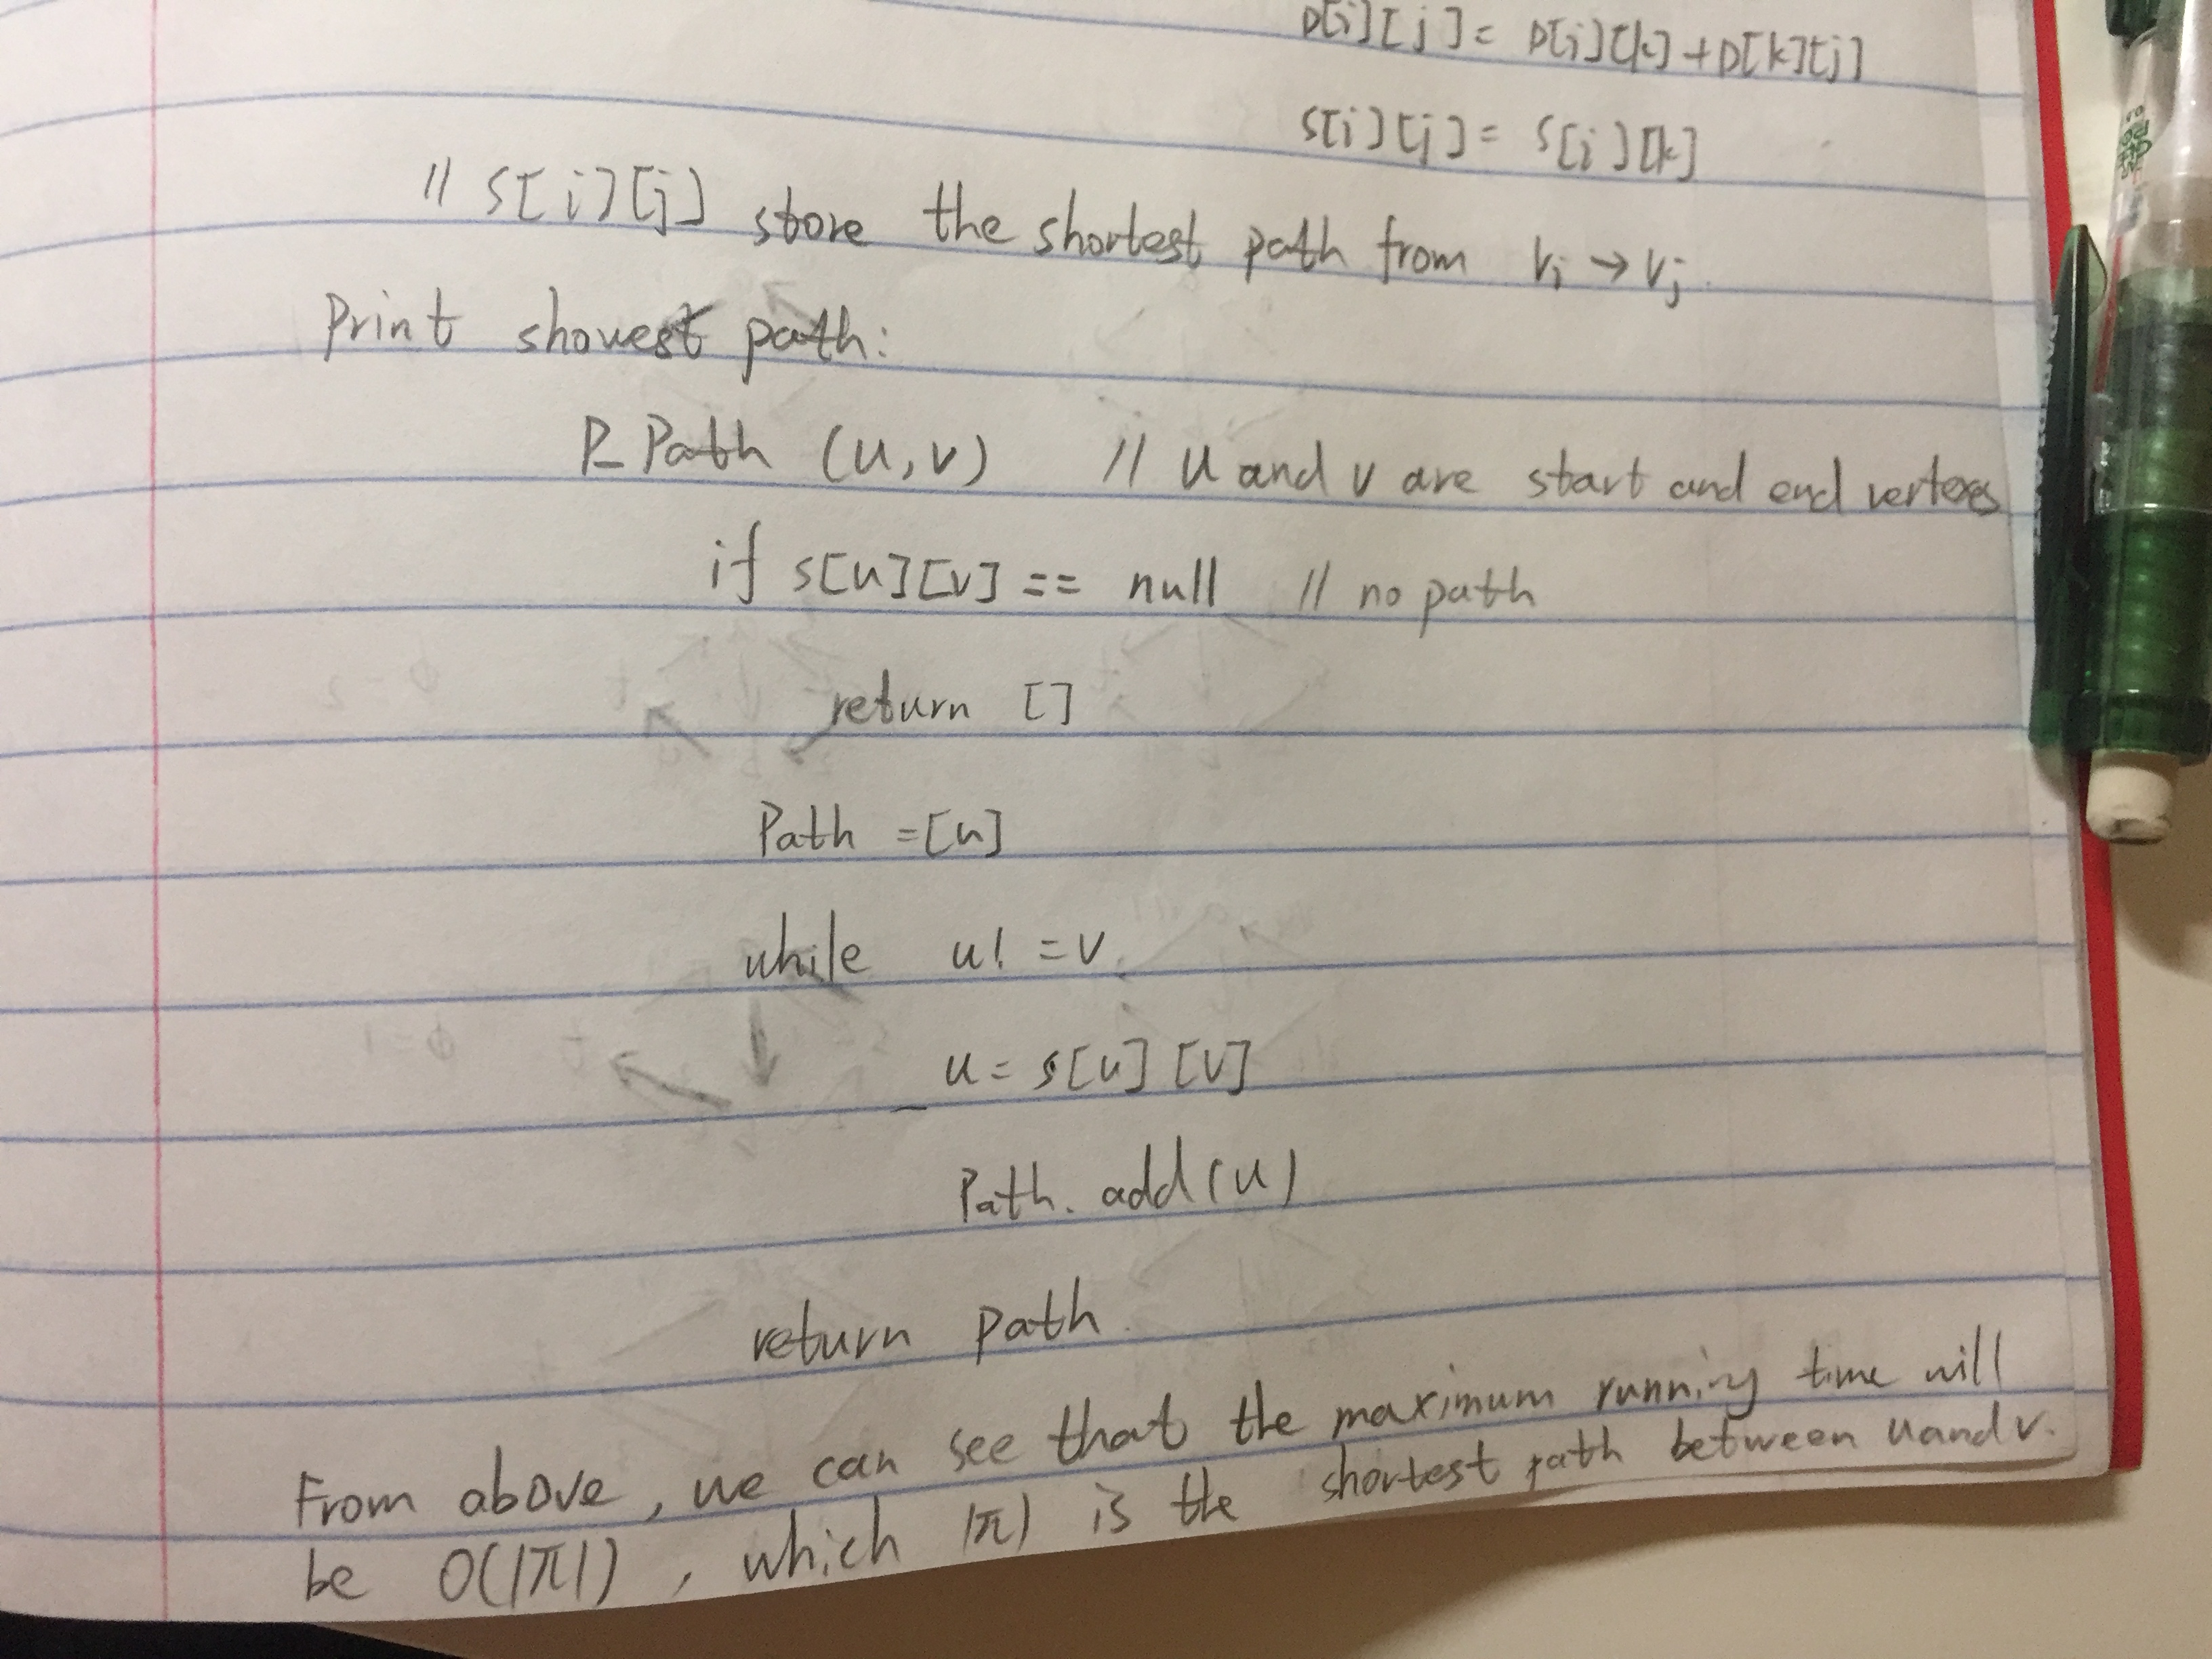 D[i][j] = D[i][k] + D[k][j]
S[i][j] = S[i][k]
// S[i][j] store the shortest path from Vi → Vj.
Print shouest path:
P_Path (u, v) // u and v are start and end vertexes
if s[u][v] == null // no path
return []
Path = [u]
while u! = v.
u = s[u][v]
Path. add(u)
return path.
From above, we can see that the maximum running time will
be O(|π|), which |π| is the shortest path between u and v.